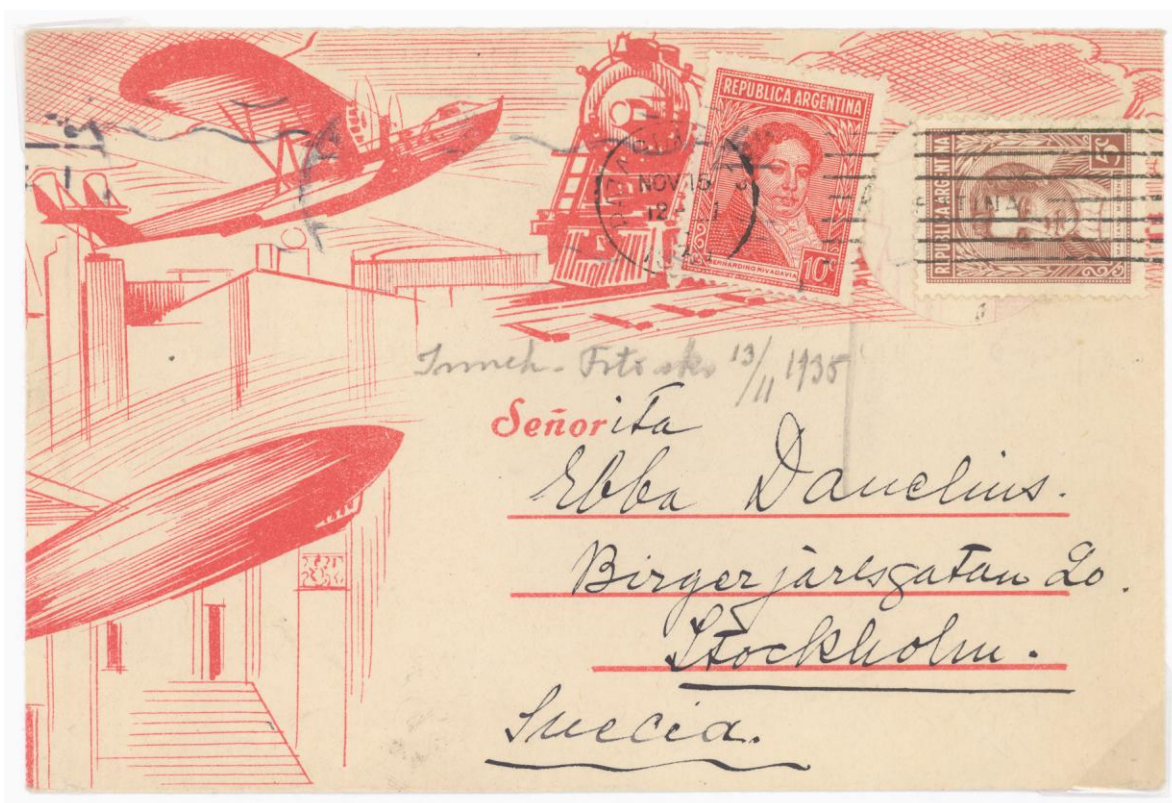 REPUBLICA ARGENTINA
BERNARDINO RIVADAVIA
10c
REPUBLICA ARGENTINA
5c
NOV 15
12
13/11 1935
Señorita
Ebba Danelius.
Birger jarlsgatan 20.
Stockholm.
Suecia.